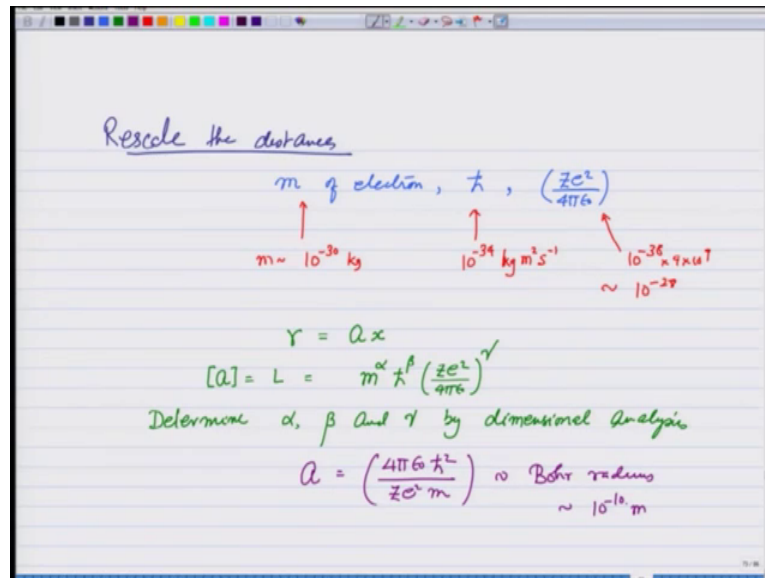 Rescale the distances
m of electron , ħ , (Ze²/4πε₀)
m ~ 10⁻³⁰ kg 10⁻³⁴ kg m² s⁻¹ 10⁻³⁸ × 9 × 10⁹
~ 10⁻²⁸
r = a x
[a] = L = m^α ħ^β (Ze²/4πε₀)^γ
Determine α, β and γ by dimensional analysis
a = (4πε₀ ħ²/Ze² m) ~ Bohr radius
~ 10⁻¹⁰ m